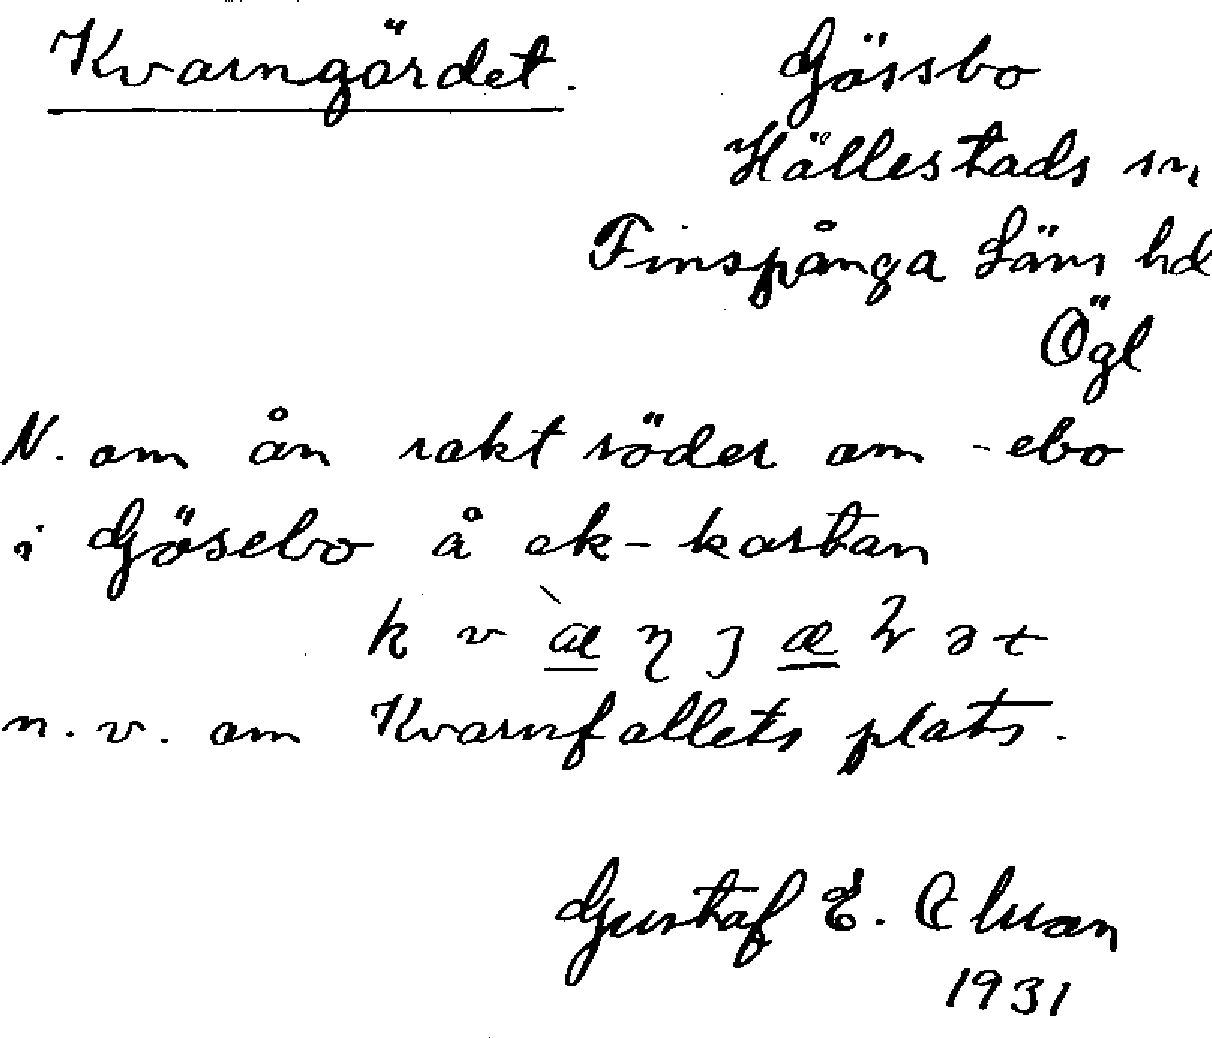 Kvarngärdet. Gössbo
Hällestads sn
Finspånga Läns hd
Ögl
N. om ån rakt söder om -ebo
i Gösebo å ek-kartan
n. v. om Kvarnfallets plats.
Gustaf E.
1931